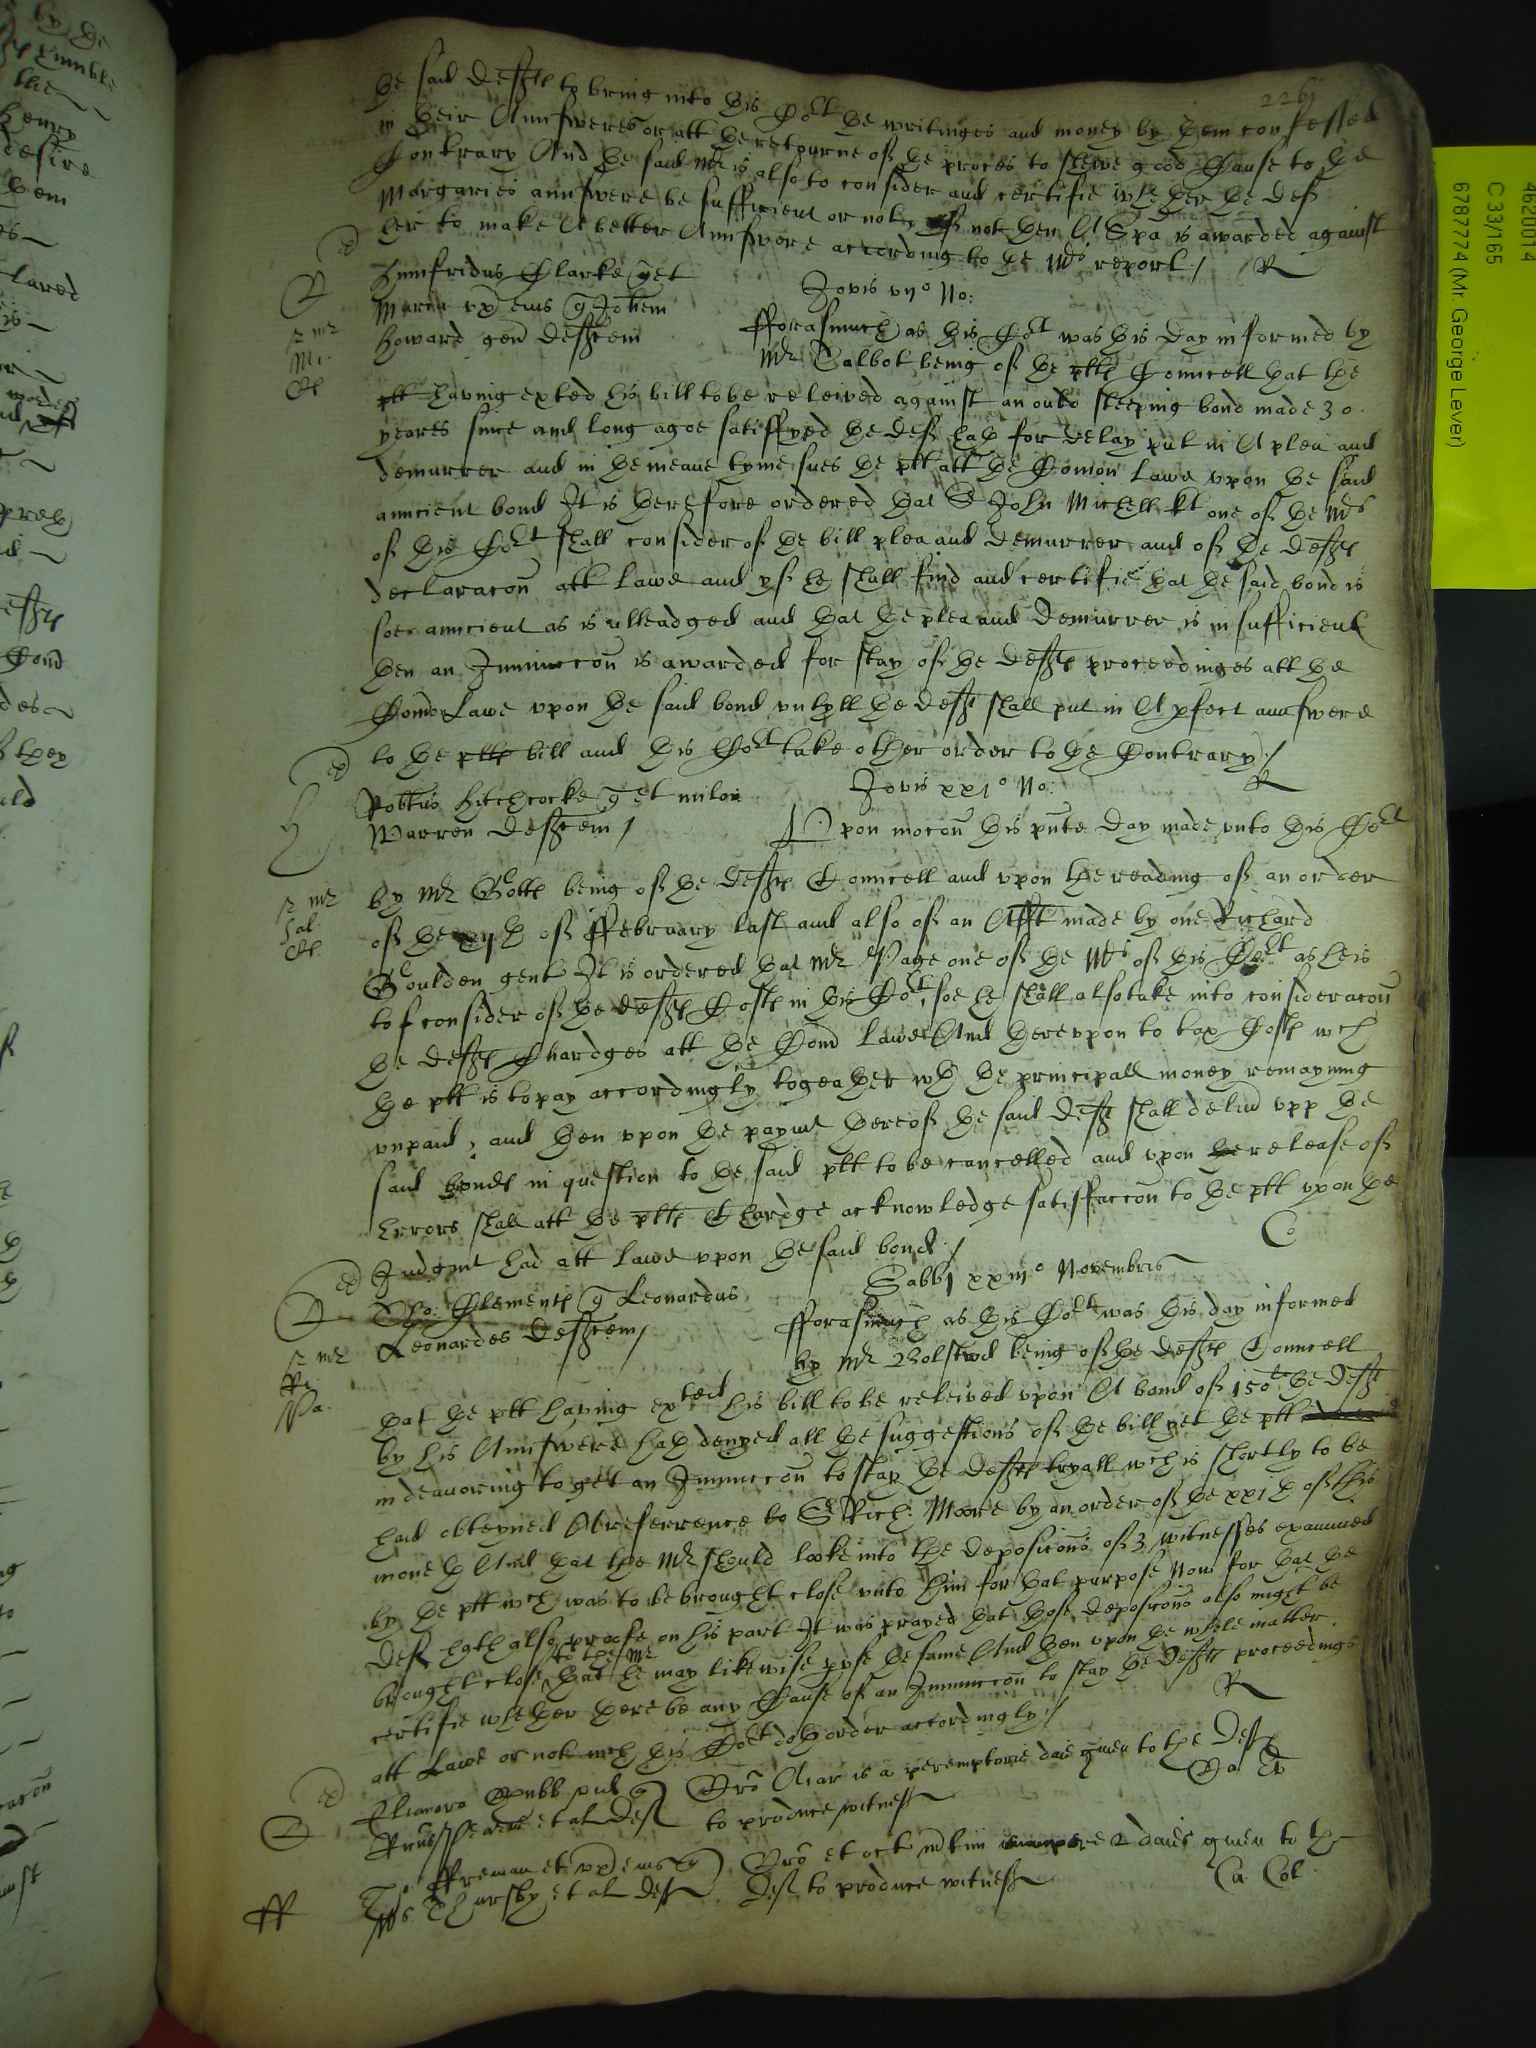 226
the said defts to bring into this Co^rt the writinges and money by them confessed
in their Aunsweres or att the retourne of the proces to shewe good Cause to the
Contrary And the said M^r is also to consider and certifie whether the deft
Margaries aunswere be sufficient or not, yf not then A Spa is awarded against
her to make A better Aunswere according to the M^rs report / R
Humfridus Clarke q^r et
Maria ux^r eius q Johem
Howard gen defftem
Jovis vij^o No:
fforasmuch as this Co^rt was this day informed by
M^r Talbot being of the plts Councell that the
plt having exhted his bill to be releived against an ould sleeping bond made 30
yeares since and long agoe satisfyed the deft hath for delay put in A plea and
demurrer and in the meane tyme sues the plt att the Comon Lawe upon the said
auncient bond It is therefore ordered that S^r John Michell k^t one of the M^rs
of this Co^rt shall consider of the bill plea and demurrer and of the defts
declaracon att Lawe and yf he shall find and certifie that the said bond is
soe auncient as is alleadged and that the plea and demurrer is insufficient
then an Iniunccon is awarded for stay of the defts proceedinges att the
Comon Lawe upon the said bond untyll the deft shall put in A pfect aunswere
to the plts bill and this Co^rt take other order to the Contrary /
R
Robtus Hitchcocke q et milon
Warren defftem /
Jovis xxj^o No:
Upon mocon this pnte day made unto this Co^rt
by M^r being of the defts Councell and upon the reading of an order
of the of ffebruary last and also of an Afft made by one Richard
Goulden gent It is ordered that M^r Page one of the M^rs of this Co^rt as he is
to consider of the defts Costs in this Co^rt, soe he shall also take into consideracon
the defts Chardges att the Comō Lawe And thereupon to tax Costs w^ch
the plt is to pay accordingly togeather w^th the principall money remayning
unpaid, and then upon the paym^t thereof the said deft shall deliv^r upp the
said bonds in question to the said plt to be cancelled and upon the release of
Errors shall att the plts Chardge acknowledge satisfaccon to the plt upon the
Judgm^t had att Lawe upon the said bond /
Co
Tho: Clements q Leonardus
Leonardes defftem /
Sabbi xxiij^o Novembris
fforasmuch as this Co^rt was this day informed
by M^r being of the defts Councell
that the plt having exhted his bill to be releived upon A bond of 150^li the deft
by his Aunswere hath denyed all the suggestions of the bill yet the plt
indeavoring to get an Iniunccon to stay the defts tryall w^ch is shortly to be
had obteyned A referrence to S^r Rich: Moore by an order of the xxith of this
moneth And that the M^r should looke into the deposicons of 3 witnesses examined
by the plt w^ch was to be brought close unto him for that purpose Now for that the
deft hath also proofe on his part It was prayed that those deposicons also might be
brought close to the M^r that he may likewise pvse the same And then upon the whole matter
certifie whether there be any Cause of an Iniunccon to stay the defts proceedings
att Lawe or not w^ch this Co^rt doth order accordingly /
R
Elianora Gubb q
et al deft
Cro Aiar is a peremptorie daie given to the deft
to produce witness
ffreman et ux^r eius q
Thursby et al deft
Cro et oct mtini are 2 daies given to the
deft to produce witness
Ca Col
ff
4620014
C 33/165
6787774 (Mr. George Lever)